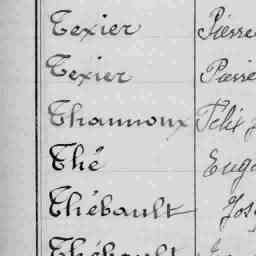 Texier Pierre
Texier Pierre
Thaumoux Félix J
Thé Eugè
Thébault Jos
Thébault